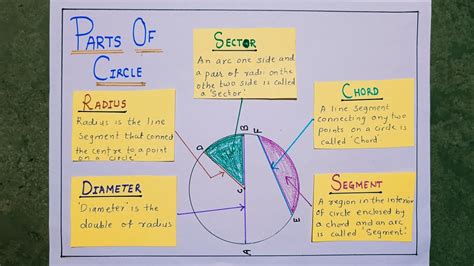 PARTS OF
CIRCLE
SECTOR
An arc one side and
a pair of radii on the
othe two side is called
a 'Sector'.
RADIUS
Radius is the line
Segment that conned
the centre to a point
on a circle'
CHORD
A line Segment
connecting any two
points on a circle is
called 'Chord'.
DIAMETER
'Diameter' is the
double of radius.
SEGMENT
A region in the interior
of circle enclosed by
a chord and an arc
is called 'Segment'.
D
B
F
C
E
A